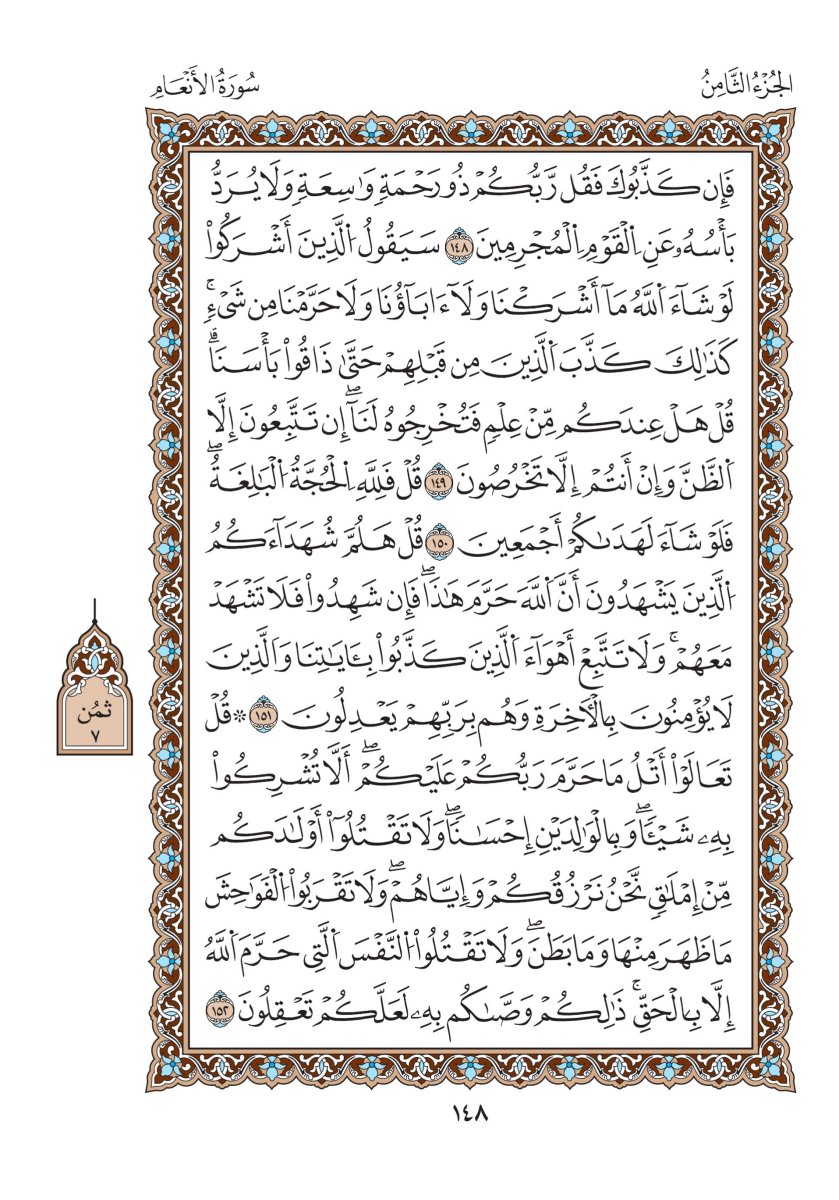 الجُزْءُ الثَّامِنُ
سُورَةُ الأَنْعَامِ
فَإِن كَذَّبُوكَ فَقُل رَّبُّكُمْ ذُو رَحْمَةٍ وَٰسِعَةٍ وَلَا يُرَدُّ
بَأْسُهُۥ عَنِ اِ۬لْقَوْمِ اِ۬لْمُجْرِمِينَ ١٤٨ سَيَقُولُ اُ۬لَّذِينَ أَشْرَكُواْ
لَوْ شَآءَ اَ۬للَّهُ مَآ أَشْرَكْنَا وَلَآ ءَابَآؤُنَا وَلَا حَرَّمْنَا مِن شَيْءٖۚ
كَذَٰلِكَ كَذَّبَ اَ۬لَّذِينَ مِن قَبْلِهِمْ حَتَّىٰ ذَاقُواْ بَأْسَنَاۗ
قُلْ هَلْ عِندَكُم مِّنْ عِلْمٖ فَتُخْرِجُوهُ لَنَآۖ إِن تَتَّبِعُونَ إِلَّا
اَ۬لظَّنَّ وَإِنْ أَنتُمْ إِلَّا تَخْرُصُونَ ١٤٩ قُلْ فَلِلَّهِ اِ۬لْحُجَّةُ اُ۬لْبَٰلِغَةُۖ
فَلَوْ شَآءَ لَهَدَىٰكُمْ أَجْمَعِينَ ١٥٠ قُلْ هَلُمَّ شُهَدَآءَكُمُ
اُ۬لَّذِينَ يَشْهَدُونَ أَنَّ اَ۬للَّهَ حَرَّمَ هَٰذَاۖ فَإِن شَهِدُواْ فَلَا تَشْهَدْ
مَعَهُمْۚ وَلَا تَتَّبِعْ أَهْوَآءَ اَ۬لَّذِينَ كَذَّبُواْ بِـَٔايَٰتِنَا وَالَّذِينَ
لَا يُؤْمِنُونَ بِالْأٓخِرَةِ وَهُم بِرَبِّهِمْ يَعْدِلُونَ ١٥١ ۞ قُلْ
تَعَالَوْاْ أَتْلُ مَا حَرَّمَ رَبُّكُمْ عَلَيْكُمْۖ أَلَّا تُشْرِكُواْ
بِهِۦ شَيْـٔٗاۖ وَبِالْوَٰلِدَيْنِ إِحْسَٰنٗاۖ وَلَا تَقْتُلُوٓاْ أَوْلَٰدَكُم
مِّنْ إِمْلَٰقٖ نَّحْنُ نَرْزُقُكُمْ وَإِيَّاهُمْۖ وَلَا تَقْرَبُواْ اُ۬لْفَوَٰحِشَ
مَا ظَهَرَ مِنْهَا وَمَا بَطَنَۖ وَلَا تَقْتُلُواْ اُ۬لنَّفْسَ اَ۬لَّتِي حَرَّمَ اَ۬للَّهُ
إِلَّا بِالْحَقِّۚ ذَٰلِكُمْ وَصَّىٰكُم بِهِۦ لَعَلَّكُمْ تَعْقِلُونَ ١٥٢
ثمُن
٧
١٤٨